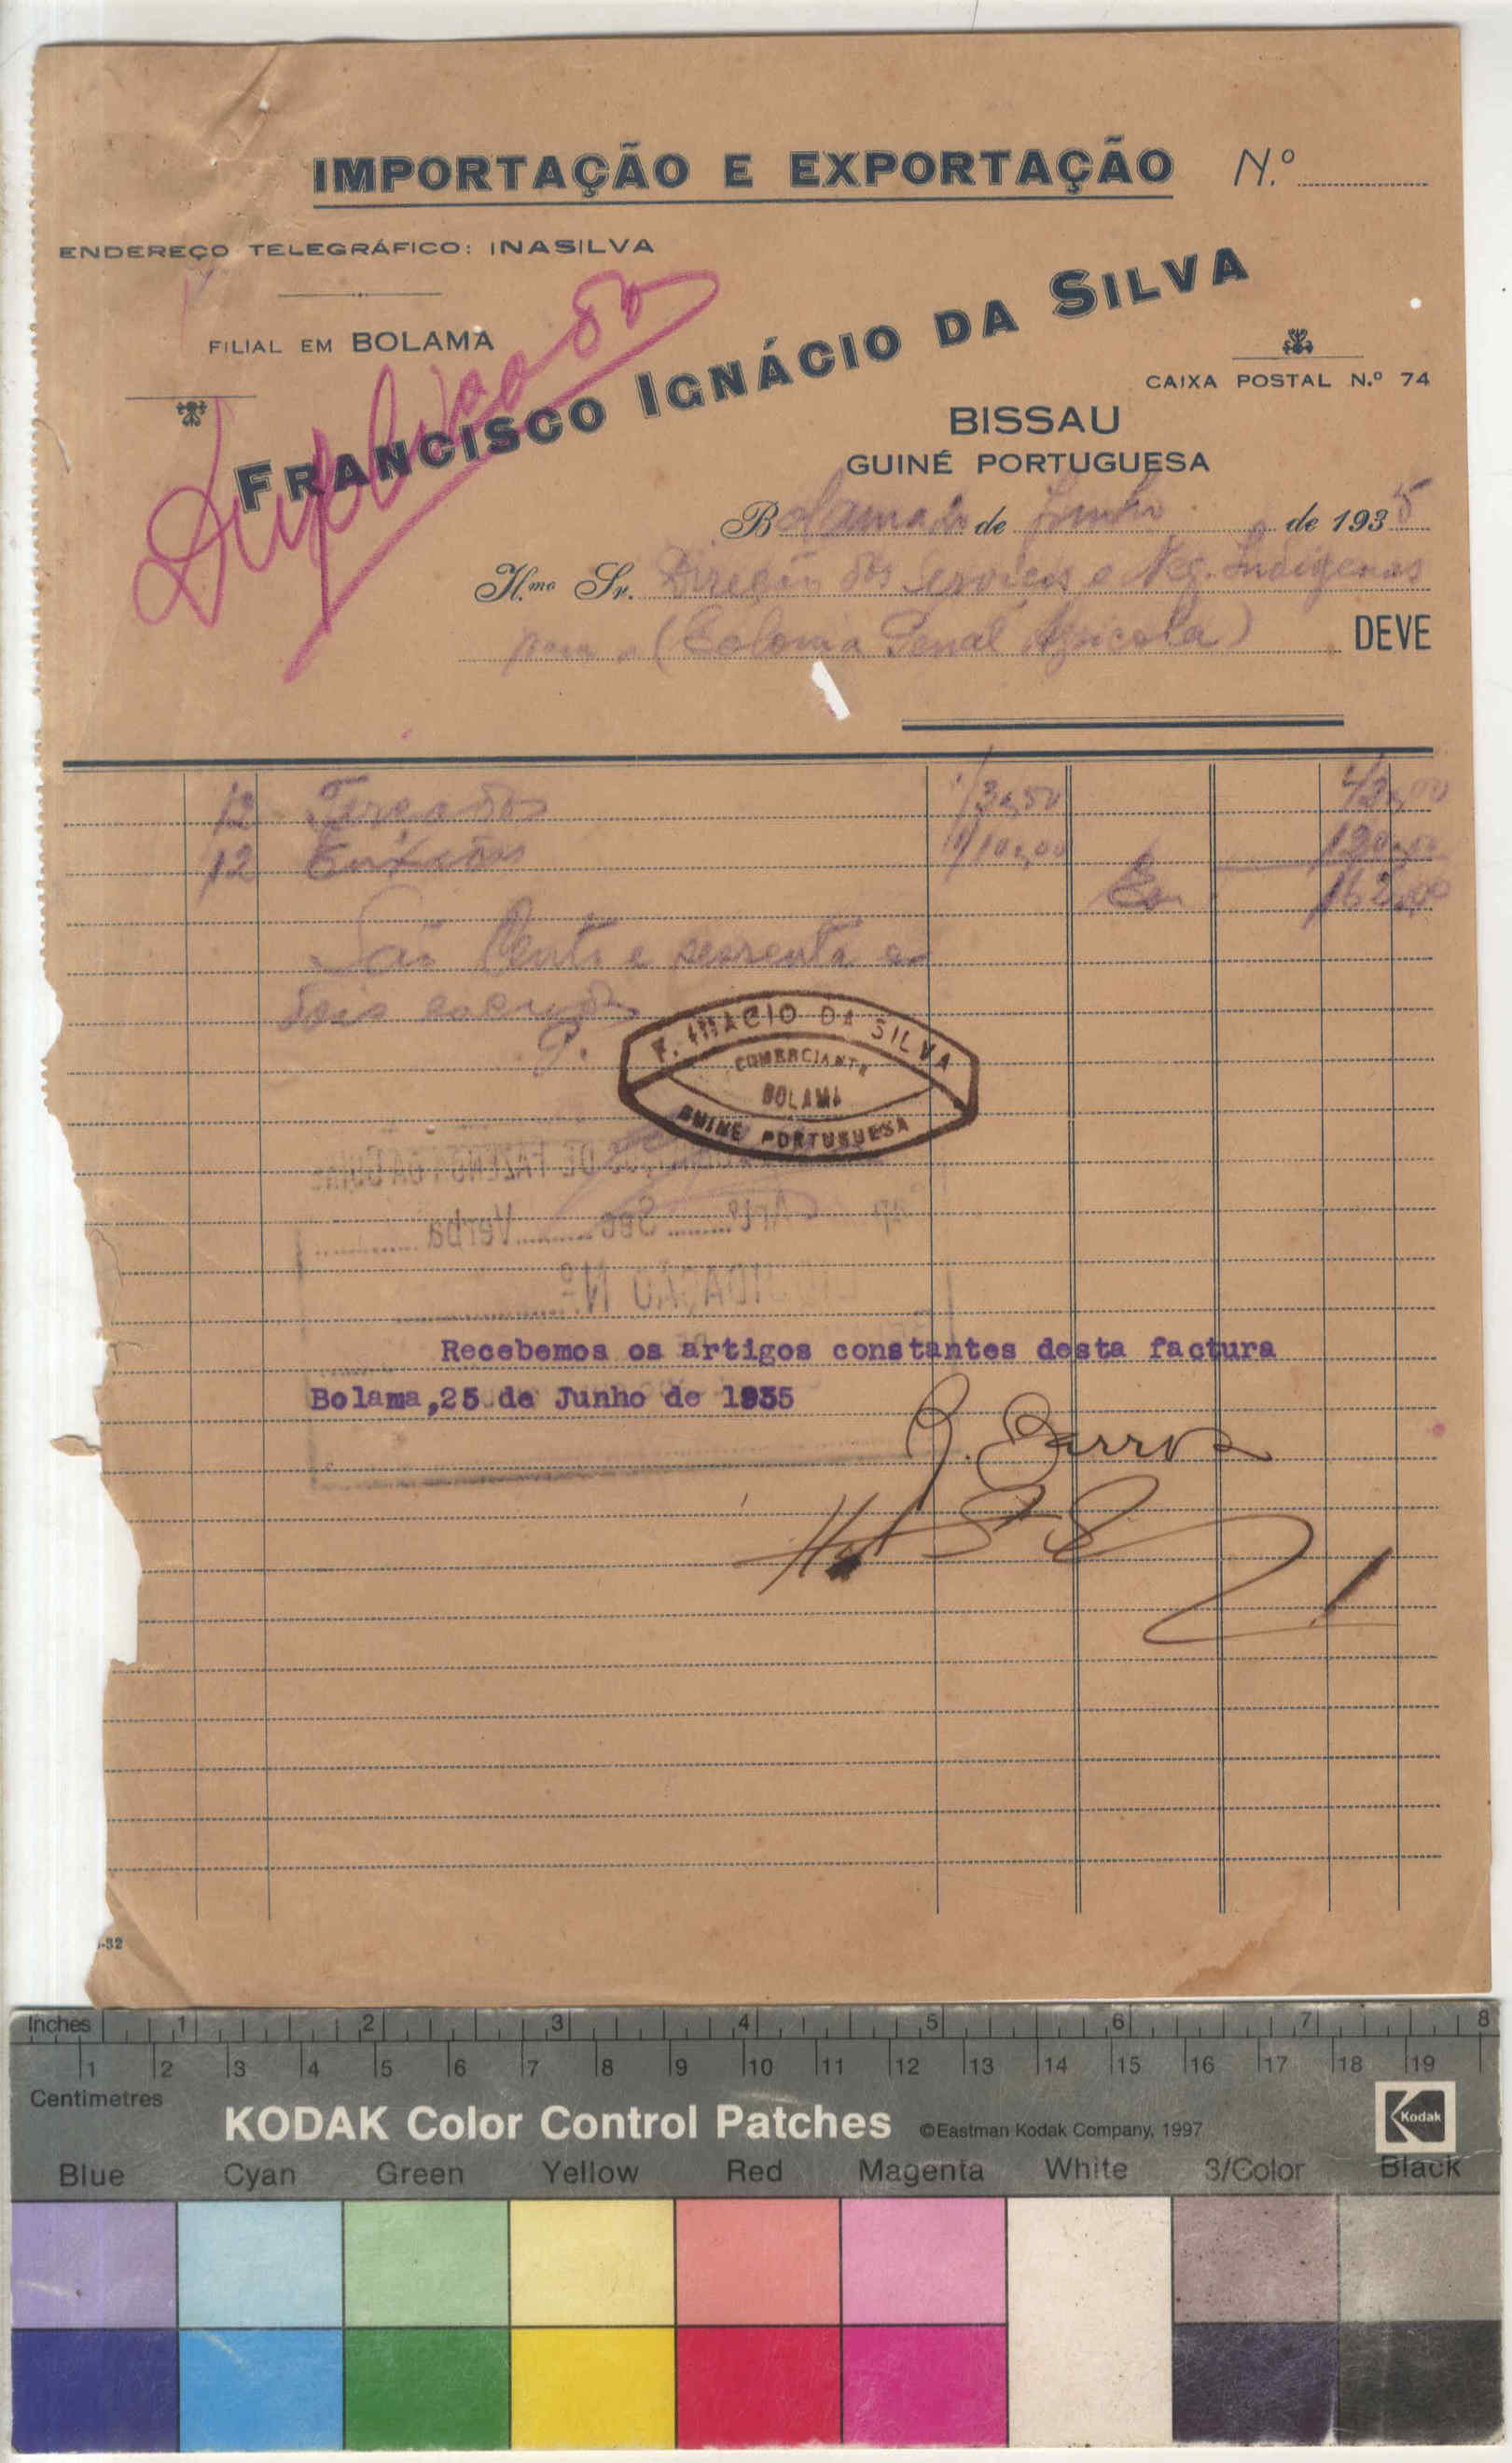 IMPORTAÇÃO E EXPORTAÇÃO
N.º
ENDEREÇO TELEGRÁFICO: INASILVA
FILIAL EM BOLAMA
Duplicado
FRANCISCO IGNÁCIO DA SILVA
CAIXA POSTAL N.º 74
BISSAU
GUINÉ PORTUGUESA
Bolama de Junho de 1935
Il.mo Sr. Direção dos Serviços e Neg. Indigenas
para a (Colonia Penal Agricola) DEVE
12 Terçados 42,00
12 Enxadas 1/10,00 120,00
162,00
São Cento e sessenta e
dois escudos
F. INACIO DA SILVA
COMERCIANTE
BOLAMA
GUINÉ PORTUGUESA
DE FAZENDA DA GUINÉ
Artº Sec Verba
LIQUIDAÇÃO Nº
Recebemos os artigos constantes desta factura
Bolama,25 de Junho de 1935
J. Barros
-32
Inches 1 2 3 4 5 6 7 8
1 2 3 4 5 6 7 8 9 10 11 12 13 14 15 16 17 18 19
Centimetres
KODAK Color Control Patches ©Eastman Kodak Company, 1997 Kodak
Blue Cyan Green Yellow Red Magenta White 3/Color Black